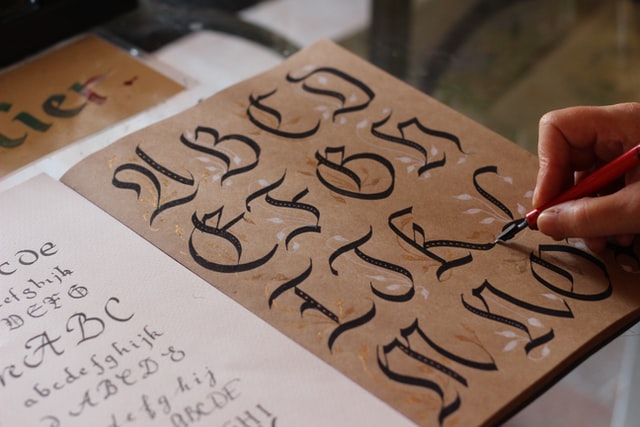 lier
A B C D
E F G H
I J K L
M N O
cDe
efghijk
DEFG
ABC
abcdefghijk
ABCD
efghij
ABCDE
GHI